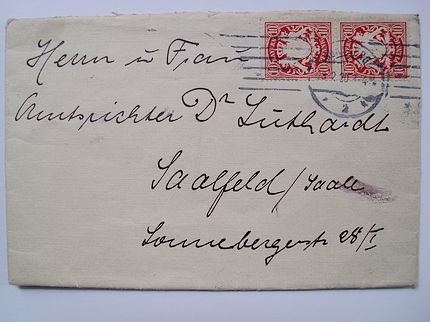 Herrn u Frau
Amtsrichter Dr Luthardt
Saalfeld/Saale
Sonnebergerstr 28/I
10 10
10 10